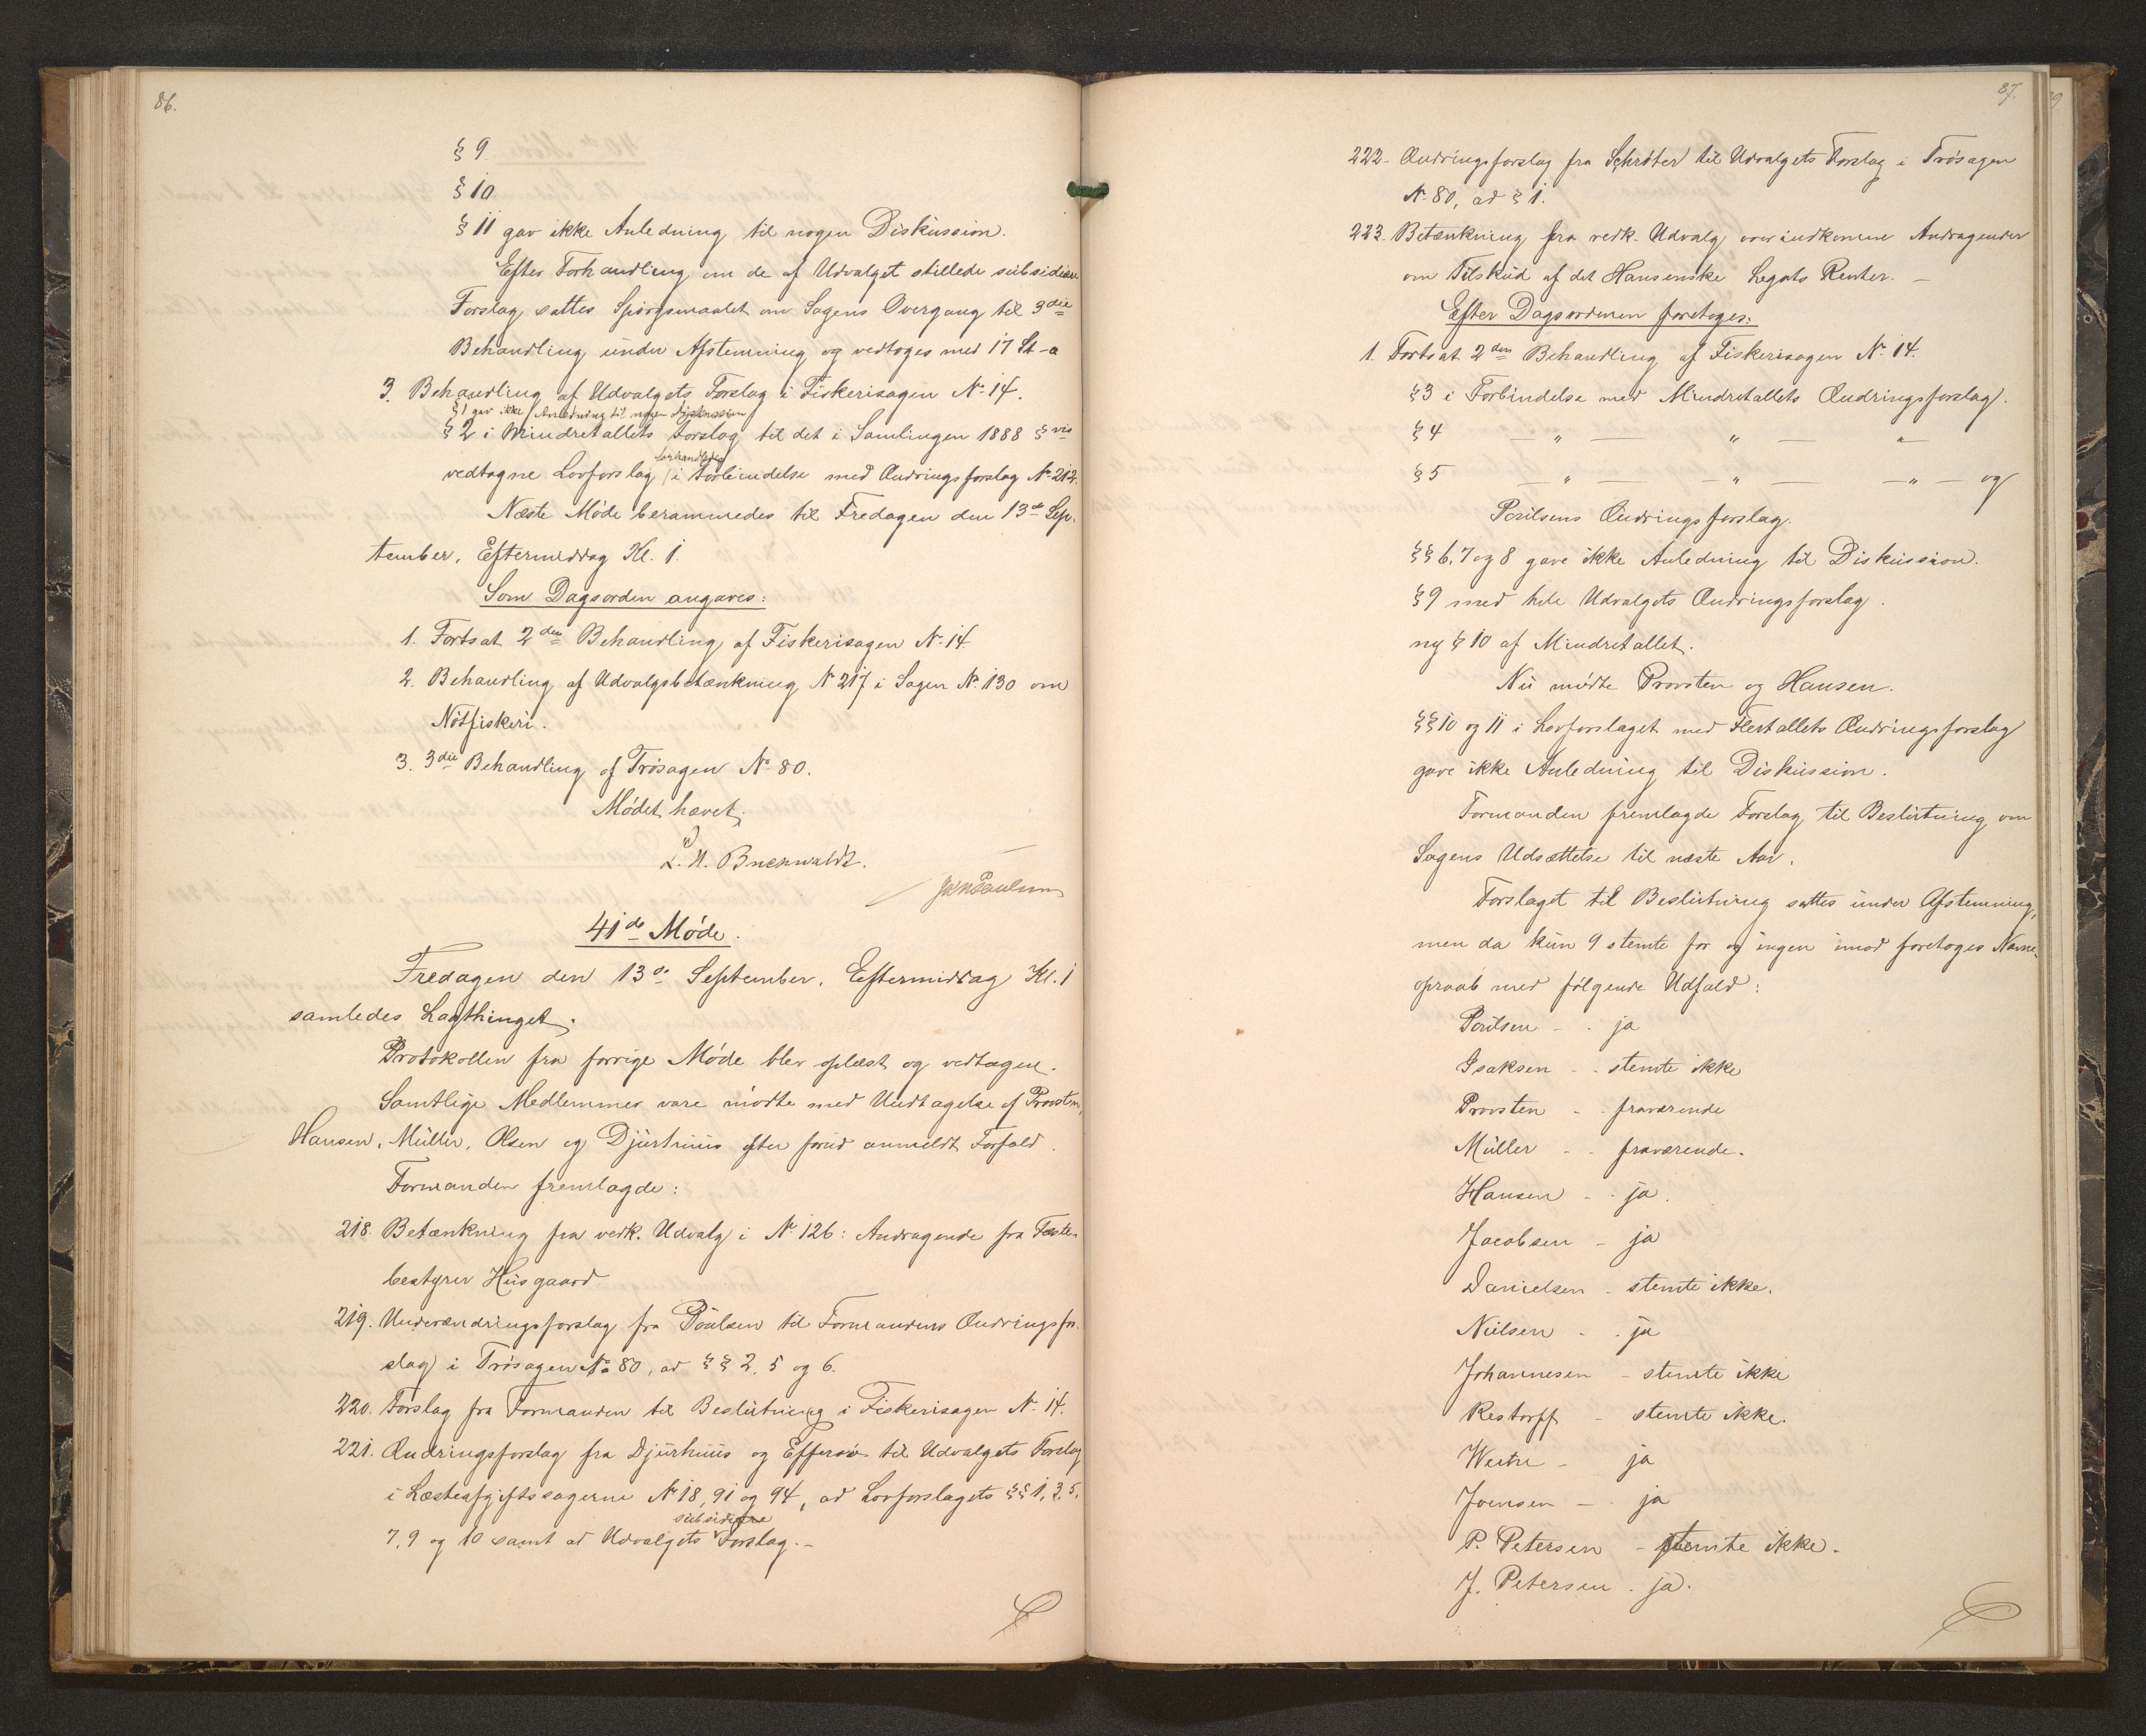 86.
§ 9.
§ 10.
§ 11 gav ikke Anledning til nogen Diskussion.
Efter Forhandling om de af Udvalget stillede subsidiære
Forslag sattes Spørgsmaalet om Sagens Overgang til 3die
Behandling under Afstemning og vedtoges med 17 St - a
3. Behandling af Udvalgets Forslag i Fiskerisagen No. 14.
§ 1 gav ikke Anledning til nogen Diskussion
§ 2 i Mindretallets Forslag til det i Samlingen 1888 §vis
forhandledes
vedtagne Lovforslag i Forbindelse med Ændringsforslag No 212.
Næste Møde berammedes til Fredagen den 13de Sep-
tember, Eftermiddag Kl. 1.
Som Dagsorden angaves:
1. Fortsat 2den Behandling af Fiskerisagen N. 14.
2. Behandling af Udvalgsbetænkning N 217 i Sagen No. 130 om
Nótfiskeri.
3. 3die Behandling af Trøsagen No 80.
Mødet hævet.
L. H. Buchwaldt.
Poulsen
41de Møde.
Fredagen den 13de September, Eftermiddag Kl. 1
samledes Lagthinget.
Protokollen fra forrige Møde blev oplæst og vedtagen.
Samtlige Medlemmer vare mødte med Undtagelse af Provsten,
Hansen, Müller, Olsen og Djurhuus efter forud anmeldt Forfald.
Formanden fremlagde:
218. Betænkning fra vedk. Udvalg i No 126: Andragende fra Faste-
bestyrer Husgaard
219. Underændringsforslag fra Poulsen til Formandens Ændringsfor-
slag i Trøsagen No 80, ad §§ 2, 5 og 6.
220. Forslag fra Formanden til Beslutning i Fiskerisagen N. 14.
221. Ændringsforslag fra Djurhuus og Effersøe til Udvalgets Forslag
i Læsteafgiftssagerne No 18, 91 og 94, ad Lovforslagets §§ 1, 3, 5,
subsidiære
7, 9 og 10 samt ad Udvalgets Forslag. -
87.
222. Ændringsforslag fra Schrøter til Udvalgets Forslag i Trøsagen
No. 80, ad § 1.
223. Betænkning fra vedk. Udvalg over indkomne Andragender
om Tilskud af det Hansenske Legats Renter. -
Efter Dagsordenen foretoges:
1. Fortsat 2den Behandling af Fiskerisagen No. 14.
§ 3 i Forbindelse med Mindretallets Ændringsforslag.
§ 4 - " - " - " -
§ 5 - " - - " - - " - og
Poulsens Ændringsforslag.
§§ 6, 7 og 8 gave ikke Anledning til Diskussion.
§ 9 med hele Udvalgets Ændringsforslag.
ny § 10 af Mindretallet.
Nu mødte Provsten og Hansen.
§§ 10 og 11 i Lovforslaget med Flertallets Ændringsforslag
gave ikke Anledning til Diskussion.
Formanden fremlagde Forslag til Beslutning om
Sagens Udsættelse til næste Aar.
Forslaget til Beslutning sattes under Afstemning,
men da kun 9 stemte for og ingen imod foretoges Navne-
opraab med følgende Udfald:
Poulsen - - ja
Isaksen - - stemte ikke
Provsten - - fraværende
Müller - - fraværende.
Hansen - - ja.
Jacobsen - ja
Danielsen - stemte ikke.
Nielsen - - ja
Johannesen - stemte ikke
Restorff - stemte ikke.
Weihe - ja
Joensen - - ja
P. Petersen - stemte ikke.
J. Petersen - ja.